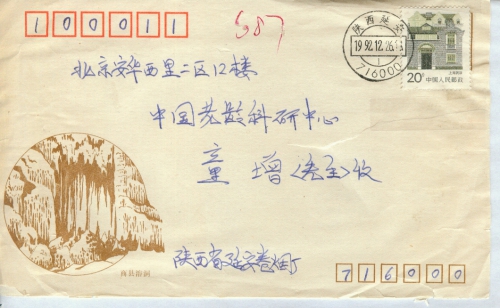 100011
587
陕西延安
1992.12.26.
716000
20分
中国人民邮政
北京安华西里二区12楼
中国老龄科研中心
童增〈先生〉收
商县溶洞
陕西省延安卷烟厂
716000